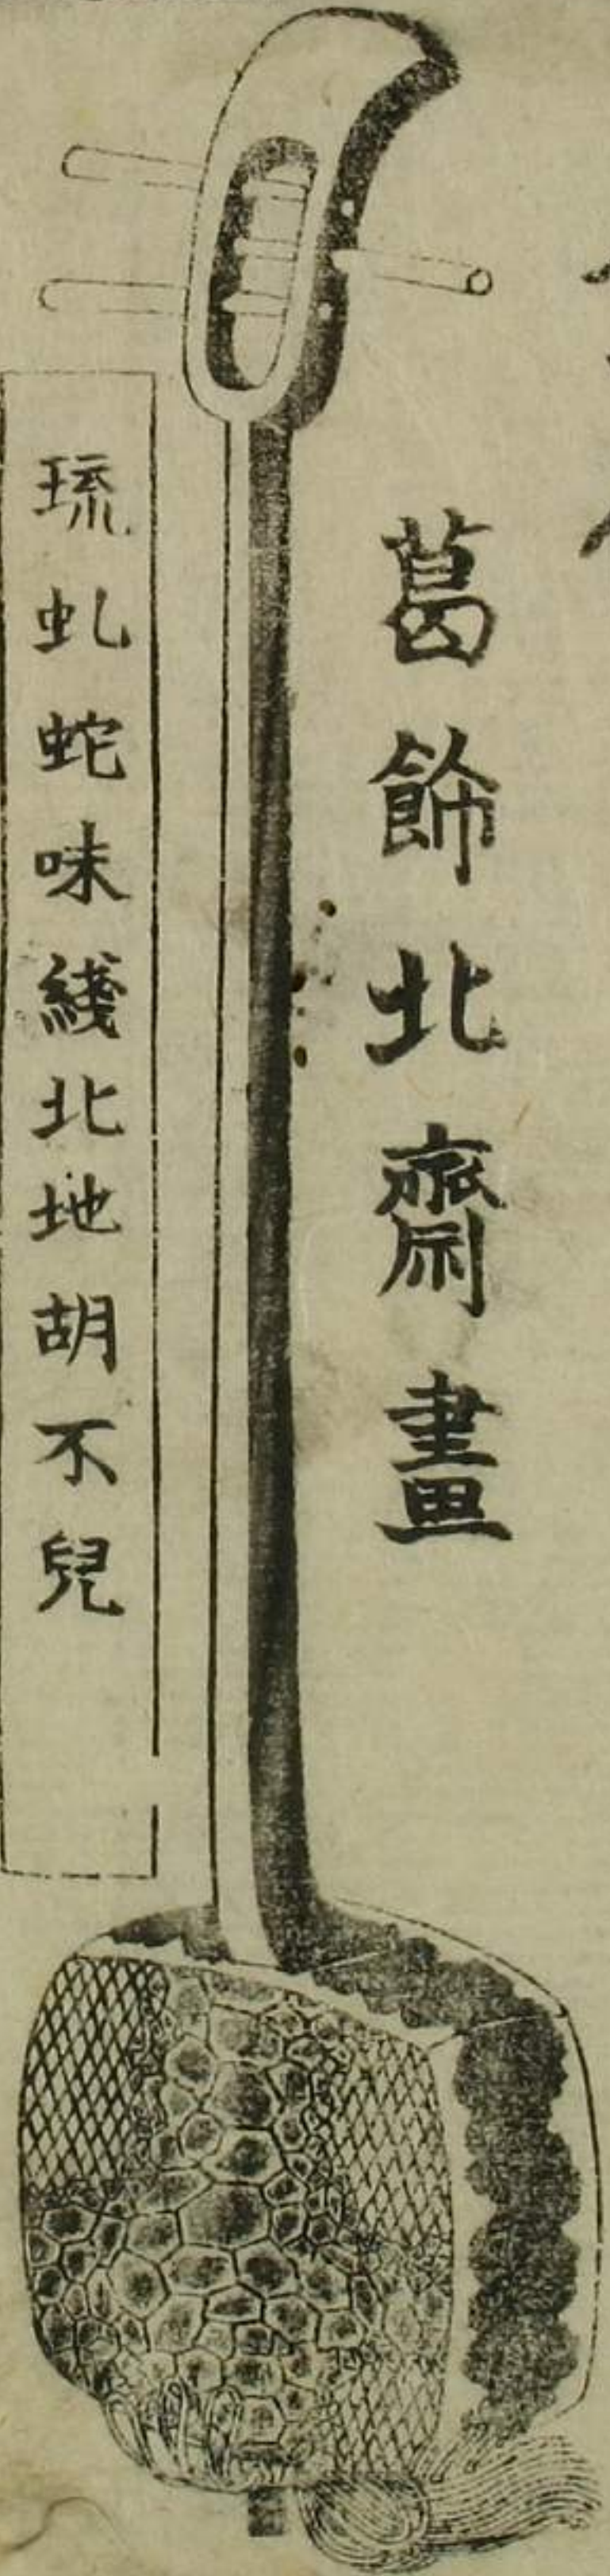 葛飾北齋畫
琉虬蛇味綫北地胡不兒